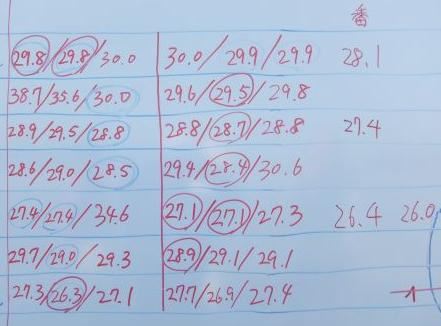 番
29.8/29.8/30.0 30.0/29.9/29.9 28.1
38.7/35.6/30.0 29.6/29.5/29.8
28.9/29.5/28.8 28.8/28.7/28.8 27.4
28.6/29.0/28.5 29.4/28.4/30.6
27.4/27.4/34.6 27.1/27.1/27.3 26.4 26.0
29.7/29.0/29.3 28.9/29.1/29.1
27.3/26.3/27.1 27.7/26.9/27.4